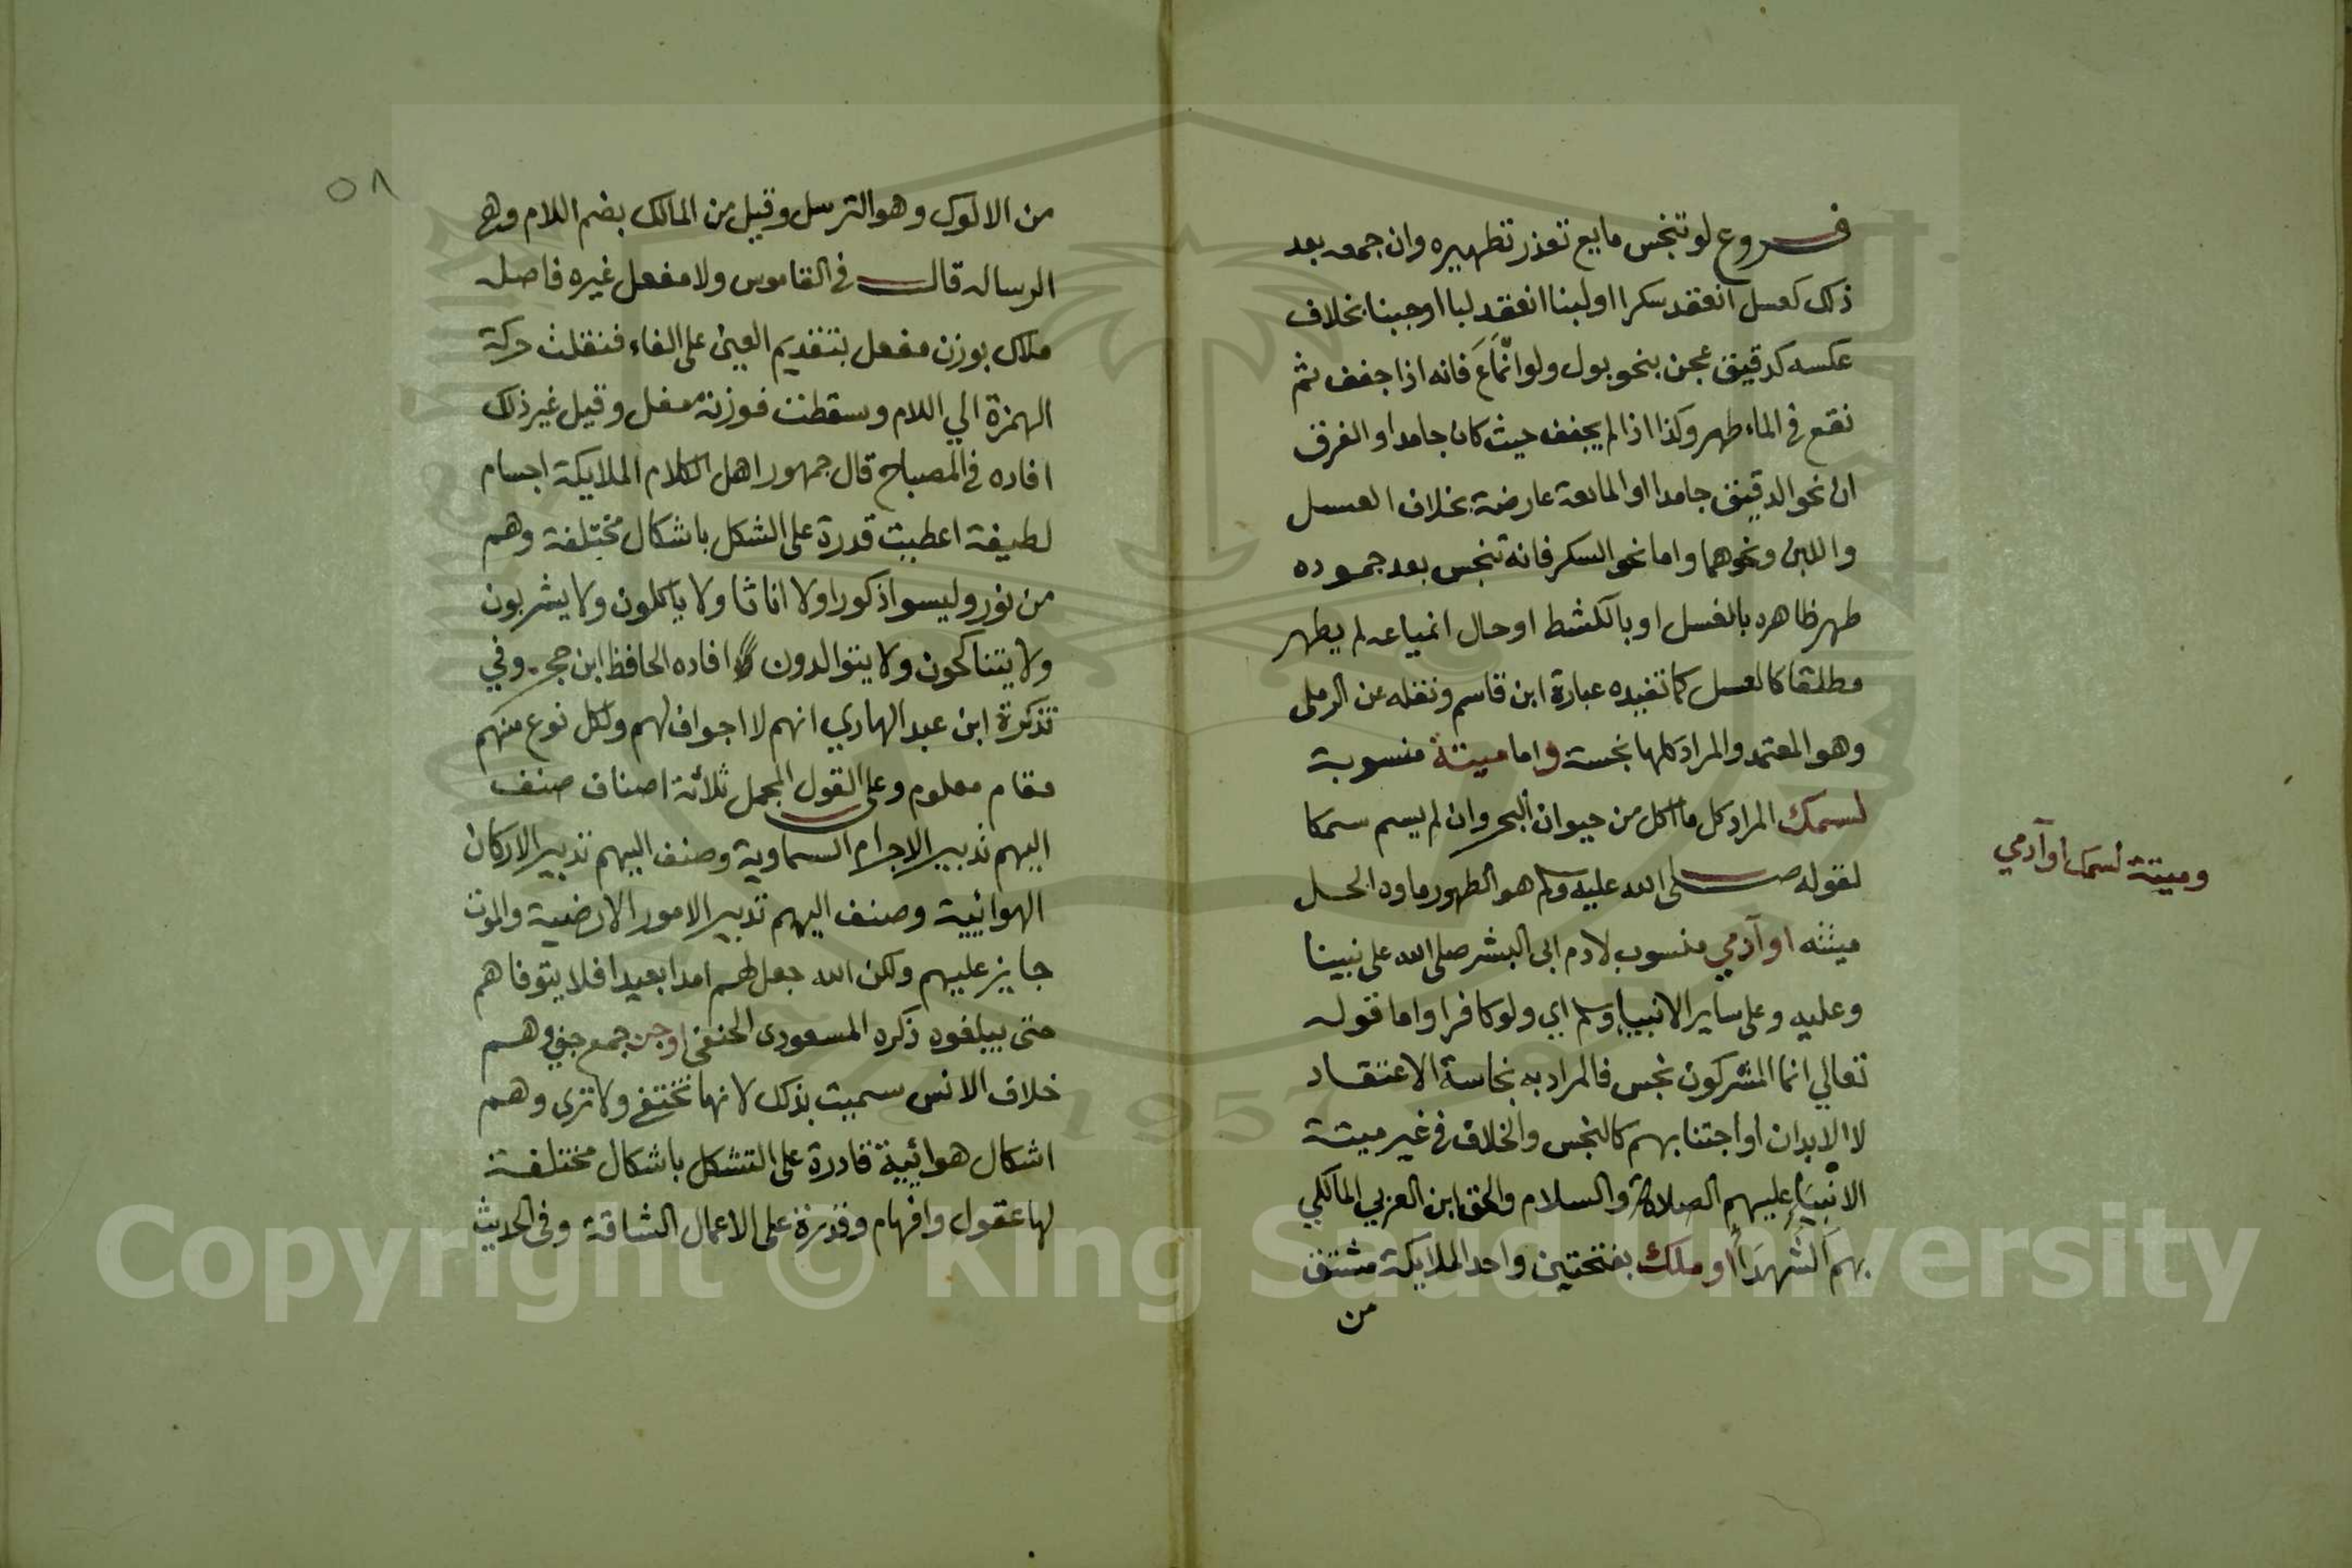 فروع لو تنجس مايع تعذر تطهيره وان جمد بعد
ذلك كعسل انعقد سكرا او لبنا انعقد لبا او جبنا بخلاف
عكسه كدقيق عجن بنحو بول ولو انماع فانه اذا جفف ثم
نقع في الماء طهر وكذا اذا لم يجفف حيث كان جامدا والفرق
ان نحو الدقيق جامد والمايعة عارضة بخلاف العسل
واللبن ونحوهما واما نحو السكر فانه تنجس بعد جموده
طهر ظاهره بالغسل او بالكشط او حال انمياعه لم يطهر
مطلقا كالعسل كما تفيده عبارة ابن قاسم ونقله عن الرملى
وهو المعتمد والمراد كلها نجسة واما ميتة منسوبة
لسمك المراد كل ما اكل من حيوان البحر وان لم يسم سمكا
لقوله صلى الله عليه وسلم هو الطهور ماوه الحل
ميتته او آدمي منسوب لادم ابى البشر صلى الله على نبينا
وعليه وعلى ساير الانبياء وسلم اي ولو كافرا واما قوله
تعالي انما المشركون نجس فالمراد به نجاسة الاعتقاد
لا الابدان او اجتنابهم كالنجس والخلاف في غير ميتة
الانبياء عليهم الصلاة والسلام والحق ابن العربي المالكي
بهم الشهدا او ملك بفتحتين واحد الملايكة مشتق
من
وميتة لسمك او آدمي
٥٨
من الالوك وهو الترسل وقيل من المالك بضم اللام وهي
الرساله قال في القاموس ولا مفعل غيره فاصله
ملاك بوزن مفعل بتقديم العين على الفاء فنقلت حركة
الهمزة الي اللام وسقطت فوزنه معل وقيل غير ذلك
افاده في المصباح قال جمهور اهل الكلام الملايكة اجسام
لطيفة اعطيت قدرة على الشكل باشكال مختلفة وهم
من نور وليسوا ذكورا ولا اناثا ولا ياكلون ولا يشربون
ولا يتناكحون ولا يتوالدون افاده الحافظ ابن حجر وفي
تذكرة ابن عبد الهادي انهم لا اجواف لهم ولكل نوع منهم
مقام معلوم وعلى القول المجمل ثلاثة اصناف صنف
اليهم تدبير الاجرام السماوية وصنف اليهم تدبير الاركان
الهوائية وصنف اليهم تدبير الامور الارضية والموت
جايز عليهم ولكن الله جعل لهم امدا بعيدا فلا يتوفاهم
حتى يبلغوه ذكره المسعودى الحنفى او جن جمع جني وهم
خلاف الانس سميت بذلك لانها تختفى ولا ترى وهم
اشكال هوائية قادرة على التشكل باشكال مختلفة
لها عقول وافهام وقدرة على الاعمال الشاقة وفى الحديث
Copyright © King Saud University
1957